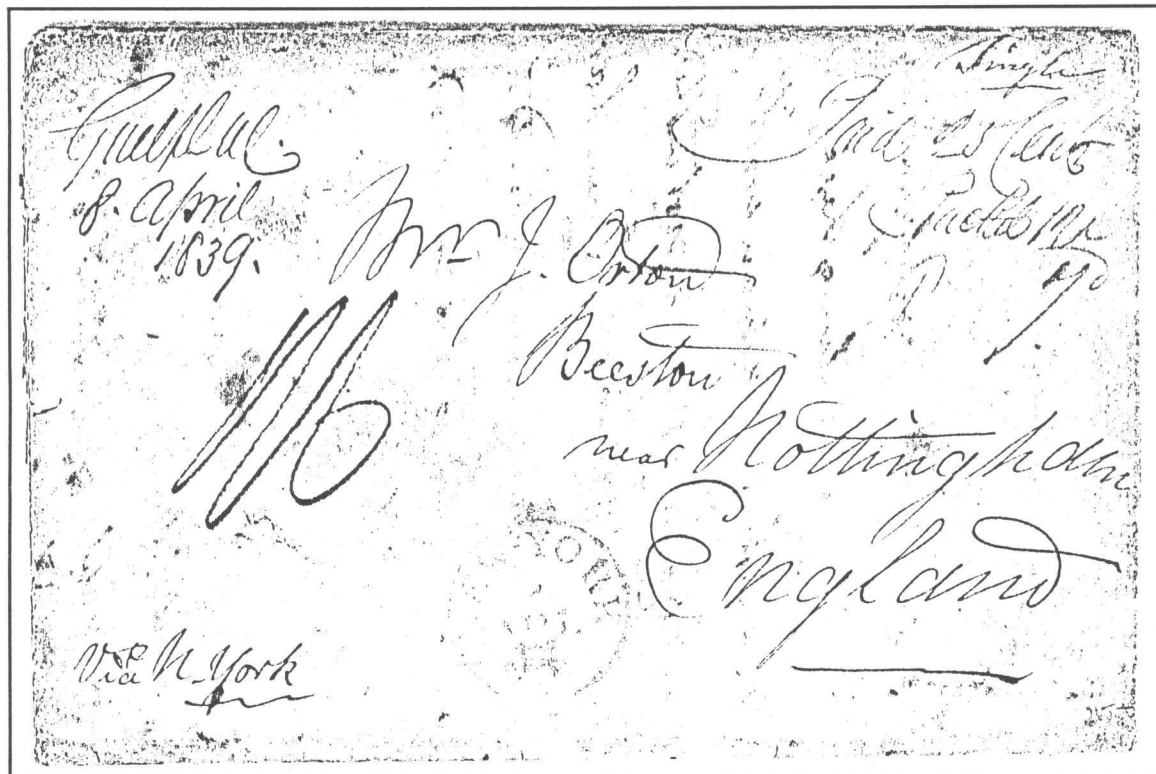 Guelph U.C.
8. April
1839.
Single
Paid. 25 Cents
Mr J. Orton
Beeston
near Nottingham
England
YORK
Via N. York